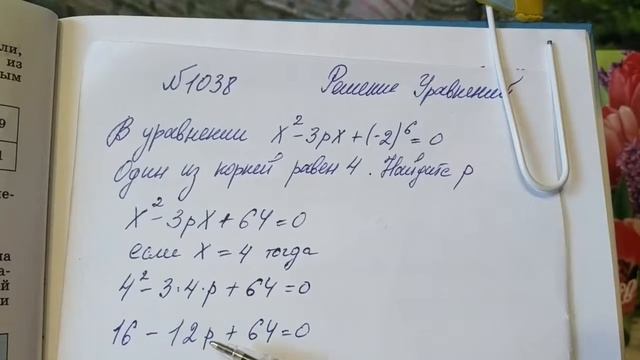 №1038 Решение Уравнений
В уравнении x² - 3px + (-2)⁶ = 0
Один из корней равен 4. Найдите p
x² - 3px + 64 = 0
если x = 4 тогда
4² - 3·4·p + 64 = 0
16 - 12p + 64 = 0